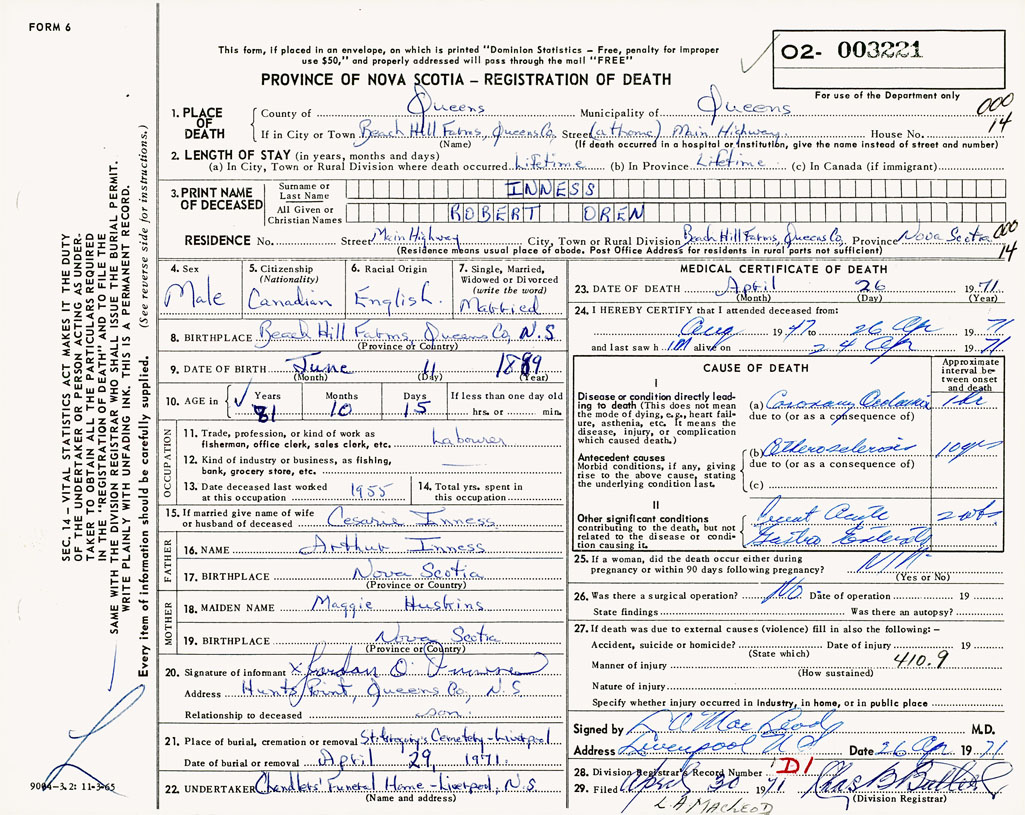 FORM 6
This form, if placed in an envelope, on which is printed "Dominion Statistics – Free, penalty for improper
use $50," and properly addressed will pass through the mail "FREE"
O2- 003221
PROVINCE OF NOVA SCOTIA – REGISTRATION OF DEATH
For use of the Department only
000
14
1. PLACE OF DEATH County of Queens Municipality of Queens
If in City or Town Beach Hill Farms, Queens Co. Street (at home) Main Highway. House No.
(Name) (If death occurred in a hospital or institution, give the name instead of street and number)
2. LENGTH OF STAY (in years, months and days)
(a) In City, Town or Rural Division where death occurred Lifetime (b) In Province Lifetime (c) In Canada (if immigrant)
3. PRINT NAME OF DECEASED Surname or Last Name INNESS
All Given or Christian Names ROBERT OREN
RESIDENCE No. Street Main Highway City, Town or Rural Division Beach Hill Farms, Queens Co. Province Nova Scotia
000
14
(Residence means usual place of abode. Post Office Address for residents in rural parts not sufficient)
4. Sex Male
5. Citizenship (Nationality) Canadian
6. Racial Origin English.
7. Single, Married, Widowed or Divorced (write the word) Married
8. BIRTHPLACE Beach Hill Farms, Queens Co, N.S
(Province or Country)
9. DATE OF BIRTH June 11 1889
(Month) (Day) (Year)
10. AGE in Years Months Days If less than one day old
81 10 15 hrs. or min.
OCCUPATION
11. Trade, profession, or kind of work as fisherman, office clerk, sales clerk, etc. Labourer
12. Kind of industry or business, as fishing, bank, grocery store, etc.
13. Date deceased last worked at this occupation 1955
14. Total yrs. spent in this occupation
15. If married give name of wife or husband of deceased Cesarie Inness
FATHER
16. NAME Arthur Inness
17. BIRTHPLACE Nova Scotia
(Province or Country)
MOTHER
18. MAIDEN NAME Maggie Huskins
19. BIRTHPLACE Nova Scotia
(Province or Country)
20. Signature of informant x
Address Hunts Point, Queens Co., N.S.
Relationship to deceased son.
21. Place of burial, cremation or removal St. Gregory's Cemetery-Liverpool
Date of burial or removal April 29, 1971.
22. UNDERTAKER Chandlers' Funeral Home-Liverpool, N.S
(Name and address)
MEDICAL CERTIFICATE OF DEATH
23. DATE OF DEATH April 26 1971
(Month) (Day) (Year)
24. I HEREBY CERTIFY that I attended deceased from:
Aug 1947 to 26 Ap 1971
and last saw him alive on 24 Ap 1971
CAUSE OF DEATH
Approximate interval between onset and death
I
Disease or condition directly leading to death (This does not mean the mode of dying, e.g., heart failure, asthenia, etc. It means the disease, injury, or complication which caused death.)
(a) Coronary 1 hr
due to (or as a consequence of)
Antecedent causes
Morbid conditions, if any, giving rise to the above cause, stating the underlying condition last.
(b) 10 yrs
due to (or as a consequence of)
(c)
II
Other significant conditions contributing to the death, but not related to the disease or condition causing it.
Acute
2 wks
25. If a woman, did the death occur either during pregnancy or within 90 days following pregnancy?
(Yes or No)
26. Was there a surgical operation? No Date of operation 19
State findings Was there an autopsy?
27. If death was due to external causes (violence) fill in also the following:–
Accident, suicide or homicide? Date of injury 19
(State which)
Manner of injury 410.9
(How sustained)
Nature of injury
Specify whether injury occurred in industry, in home, or in public place
Signed by M.D.
Address Liverpool NS Date 26 Ap 1971
28. Division Registrar's Record Number D1
29. Filed April 30 1971
(Division Registrar)
L.A MACLEOD
SEC. 14 – VITAL STATISTICS ACT MAKES IT THE DUTY
OF THE UNDERTAKER OR PERSON ACTING AS UNDER-
TAKER TO OBTAIN ALL THE PARTICULARS REQUIRED
IN THE "REGISTRATION OF DEATH" AND TO FILE THE
SAME WITH THE DIVISION REGISTRAR WHO SHALL ISSUE THE BURIAL PERMIT.
WRITE PLAINLY WITH UNFADING INK. THIS IS A PERMANENT RECORD.
Every item of information should be carefully supplied. (See reverse side for instructions.)